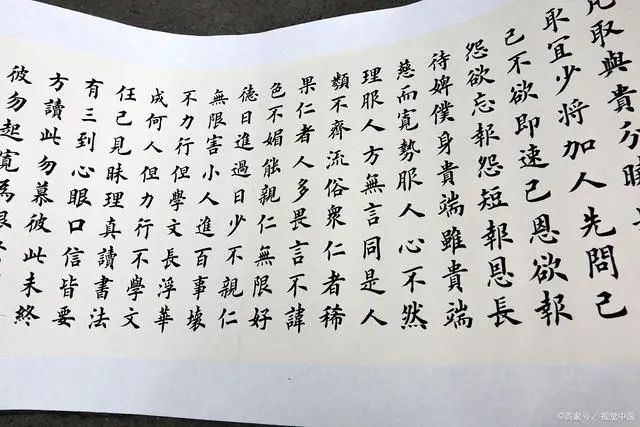 取與貴分曉
取宜少將加人先問己
己不欲即速己恩欲報
怨欲忘報怨短報恩長
待婢僕身貴端雖貴端
慈而寬勢服人心不然
理服人方無言同是人
類不齊流俗衆仁者稀
果仁者人多畏言不諱
色不媚能親仁無限好
德日進過日少不親仁
無限害小人進百事壞
不力行但學文長浮華
成何人但力行不學文
任己見昧理真讀書法
有三到心眼口信皆要
方讀此勿慕彼此未終
彼勿起寬為限
©百家号／视觉中国